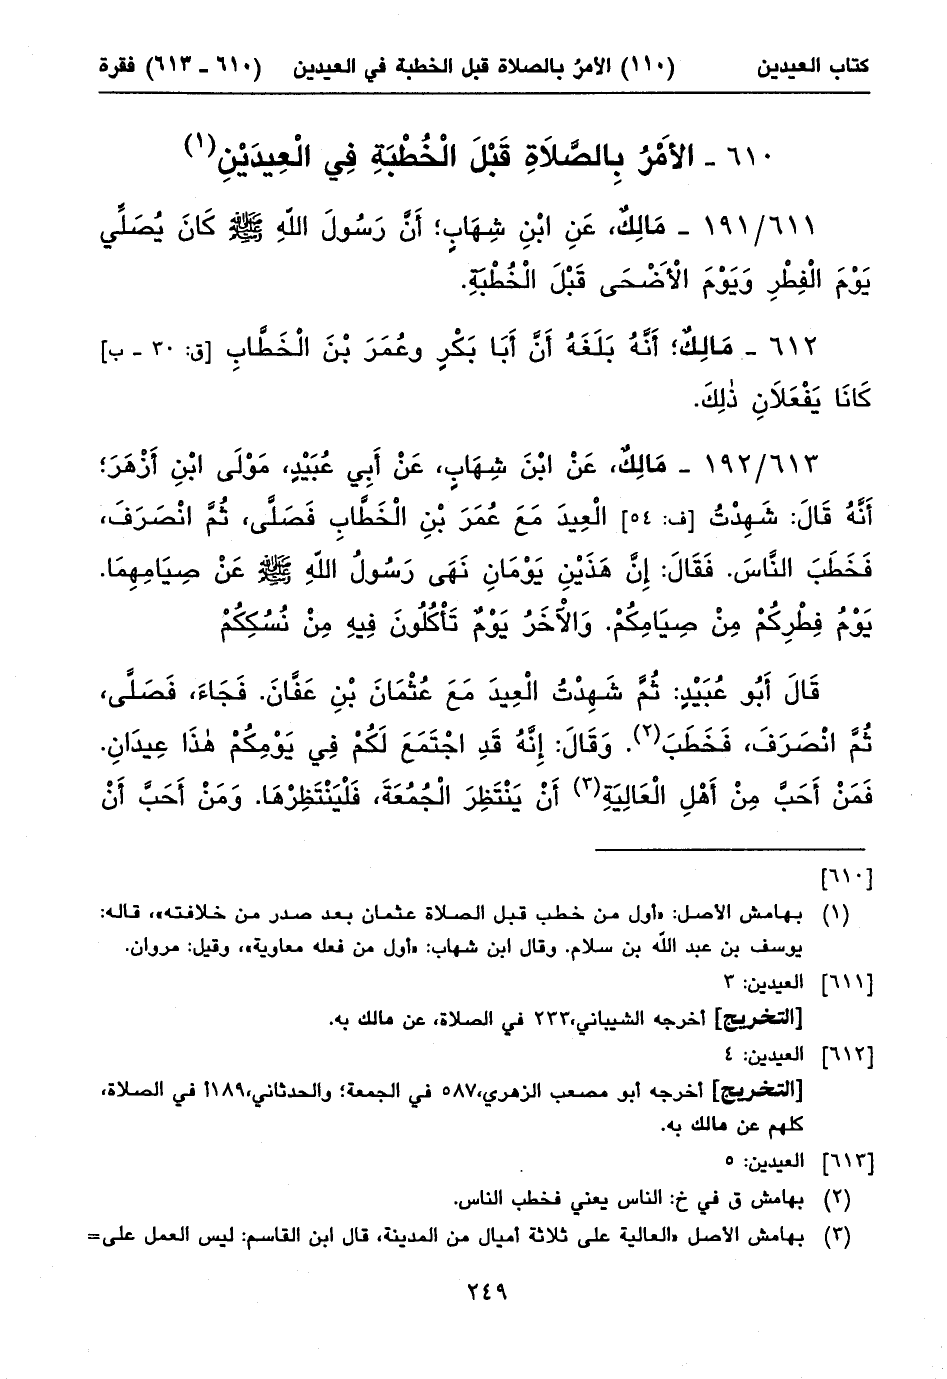 كتاب العيدين (١١٠) الأمرُ بالصلاة قبل الخطبة في العيدين (٦١٠ - ٦١٣) فقرة
٦١٠ - الأَمْرُ بِالصَّلاَةِ قَبْلَ الْخُطْبَةِ فِي الْعِيدَيْنِ(١)
١٩١/٦١١ - مَالِكٌ، عَنِ ابْنِ شِهَابٍ؛ أَنَّ رَسُولَ اللّهِ ﷺ كَانَ يُصَلَّي
يَوْمَ الْفِطْرِ وَيَوْمَ الْأَضْحَى قَبْلَ الْخُطْبَةِ.
٦١٢ - مَالِكٌ؛ أَنَّهُ بَلَغَهُ أَنَّ أَبَا بَكْرٍ وعُمَرَ بْنَ الْخَطَّابِ [ق: ٣٠ - ب]
كَانَا يَفْعَلاَنِ ذٰلِكَ.
١٩٢/٦١٣ - مَالِكٌ، عَنْ ابْنَ شِهَابٍ، عَنْ أَبِي عُبَيْدٍ، مَوْلَى ابْنِ أَزْهَرَ؛
أَنَّهُ قَالَ: شَهِدْتُ [ف: ٥٤] الْعِيدَ مَعَ عُمَرَ بْنِ الْخَطَّابِ فَصَلَّى، ثُمَّ انْصَرَفَ،
فَخَطَبَ النَّاسَ. فَقَالَ: إِنَّ هَذَيْنِ يَوْمَانِ نَهَى رَسُولُ اللّهِ ﷺ عَنْ صِيَامِهِمَا.
يَوْمُ فِطْرِكُمْ مِنْ صِيَامِكُمْ. وَالْآخَرُ يَوْمٌ تَأْكُلُونَ فِيهِ مِنْ نُسُكِكُمْ
قَالَ أَبُو عُبَيْدٍ: ثُمَّ شَهِدْتُ الْعِيدَ مَعَ عُثْمَانَ بْنِ عَفَّانَ. فَجَاءَ، فَصَلَّى،
ثُمَّ انْصَرَفَ، فَخَطَبَ(٢). وَقَالَ: إِنَّهُ قَدِ اجْتَمَعَ لَكُمْ فِي يَوْمِكُمْ هٰذَا عِيدَانِ.
فَمَنْ أَحَبَّ مِنْ أَهْلِ الْعَالِيَةِ(٣) أَنْ يَنْتَظِرَ الْجُمُعَةَ، فَلْيَنْتَظِرْهَا. وَمَنْ أَحَبَّ أَنْ
[٦١٠]
(١) بهامش الأصل: «أول من خطب قبل الصلاة عثمان بعد صدر من خلافته»، قاله:
يوسف بن عبد الله بن سلام. وقال ابن شهاب: «أول من فعله معاوية»، وقيل: مروان.
[٦١١] العيدين: ٣
[التخريج] أخرجه الشيباني،٢٣٣ في الصلاة، عن مالك به.
[٦١٢] العيدين: ٤
[التخريج] أخرجه أبو مصعب الزهري،٥٨٧ في الجمعة؛ والحدثاني،١٨٩أ في الصلاة،
كلهم عن مالك به.
[٦١٣] العيدين: ٥
(٢) بهامش ق في خ: الناس يعني فخطب الناس.
(٣) بهامش الأصل «العالية على ثلاثة أميال من المدينة، قال ابن القاسم: ليس العمل على=
٢٤٩